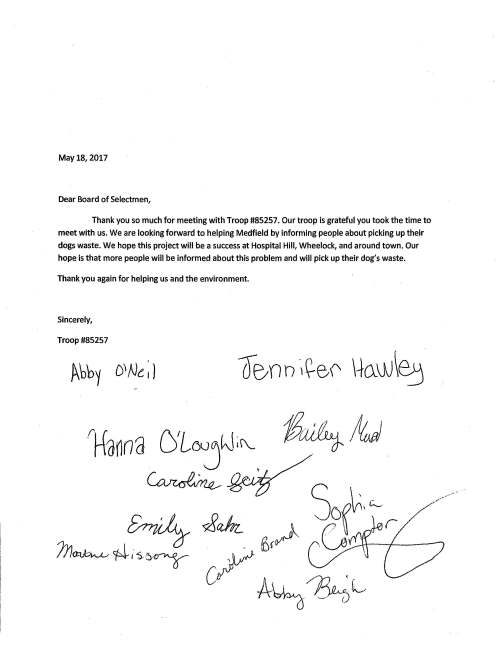 May 18, 2017
Dear Board of Selectmen,
Thank you so much for meeting with Troop #85257. Our troop is grateful you took the time to
meet with us. We are looking forward to helping Medfield by informing people about picking up their
dogs waste. We hope this project will be a success at Hospital Hill, Wheelock, and around town. Our
hope is that more people will be informed about this problem and will pick up their dog's waste.
Thank you again for helping us and the environment.
Sincerely,
Troop #85257
Abby O'Neil
Jennifer Hawley
Hanna O'Loughlin
Bailey
Caroline Seitz
Sophia
Compter
Emily Sahr
Hissong
Caroline Brand
Abby Reigh